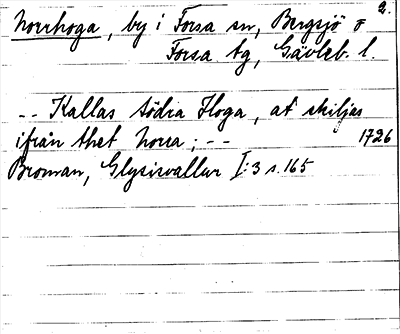 2.
Norrhoga, by i Forsa sn, Bergsjö o
Forsa tg, Gävleb. l.
-- Kallas södra Hoga, at skiljas
ifrån thet norra; -- 1726
Broman, Glysisvallur I:3 s. 165